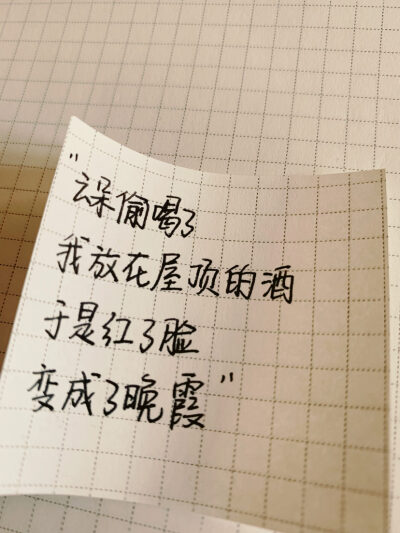 "云朵偷喝了
我放在屋顶的酒
于是红了脸
变成了晚霞"